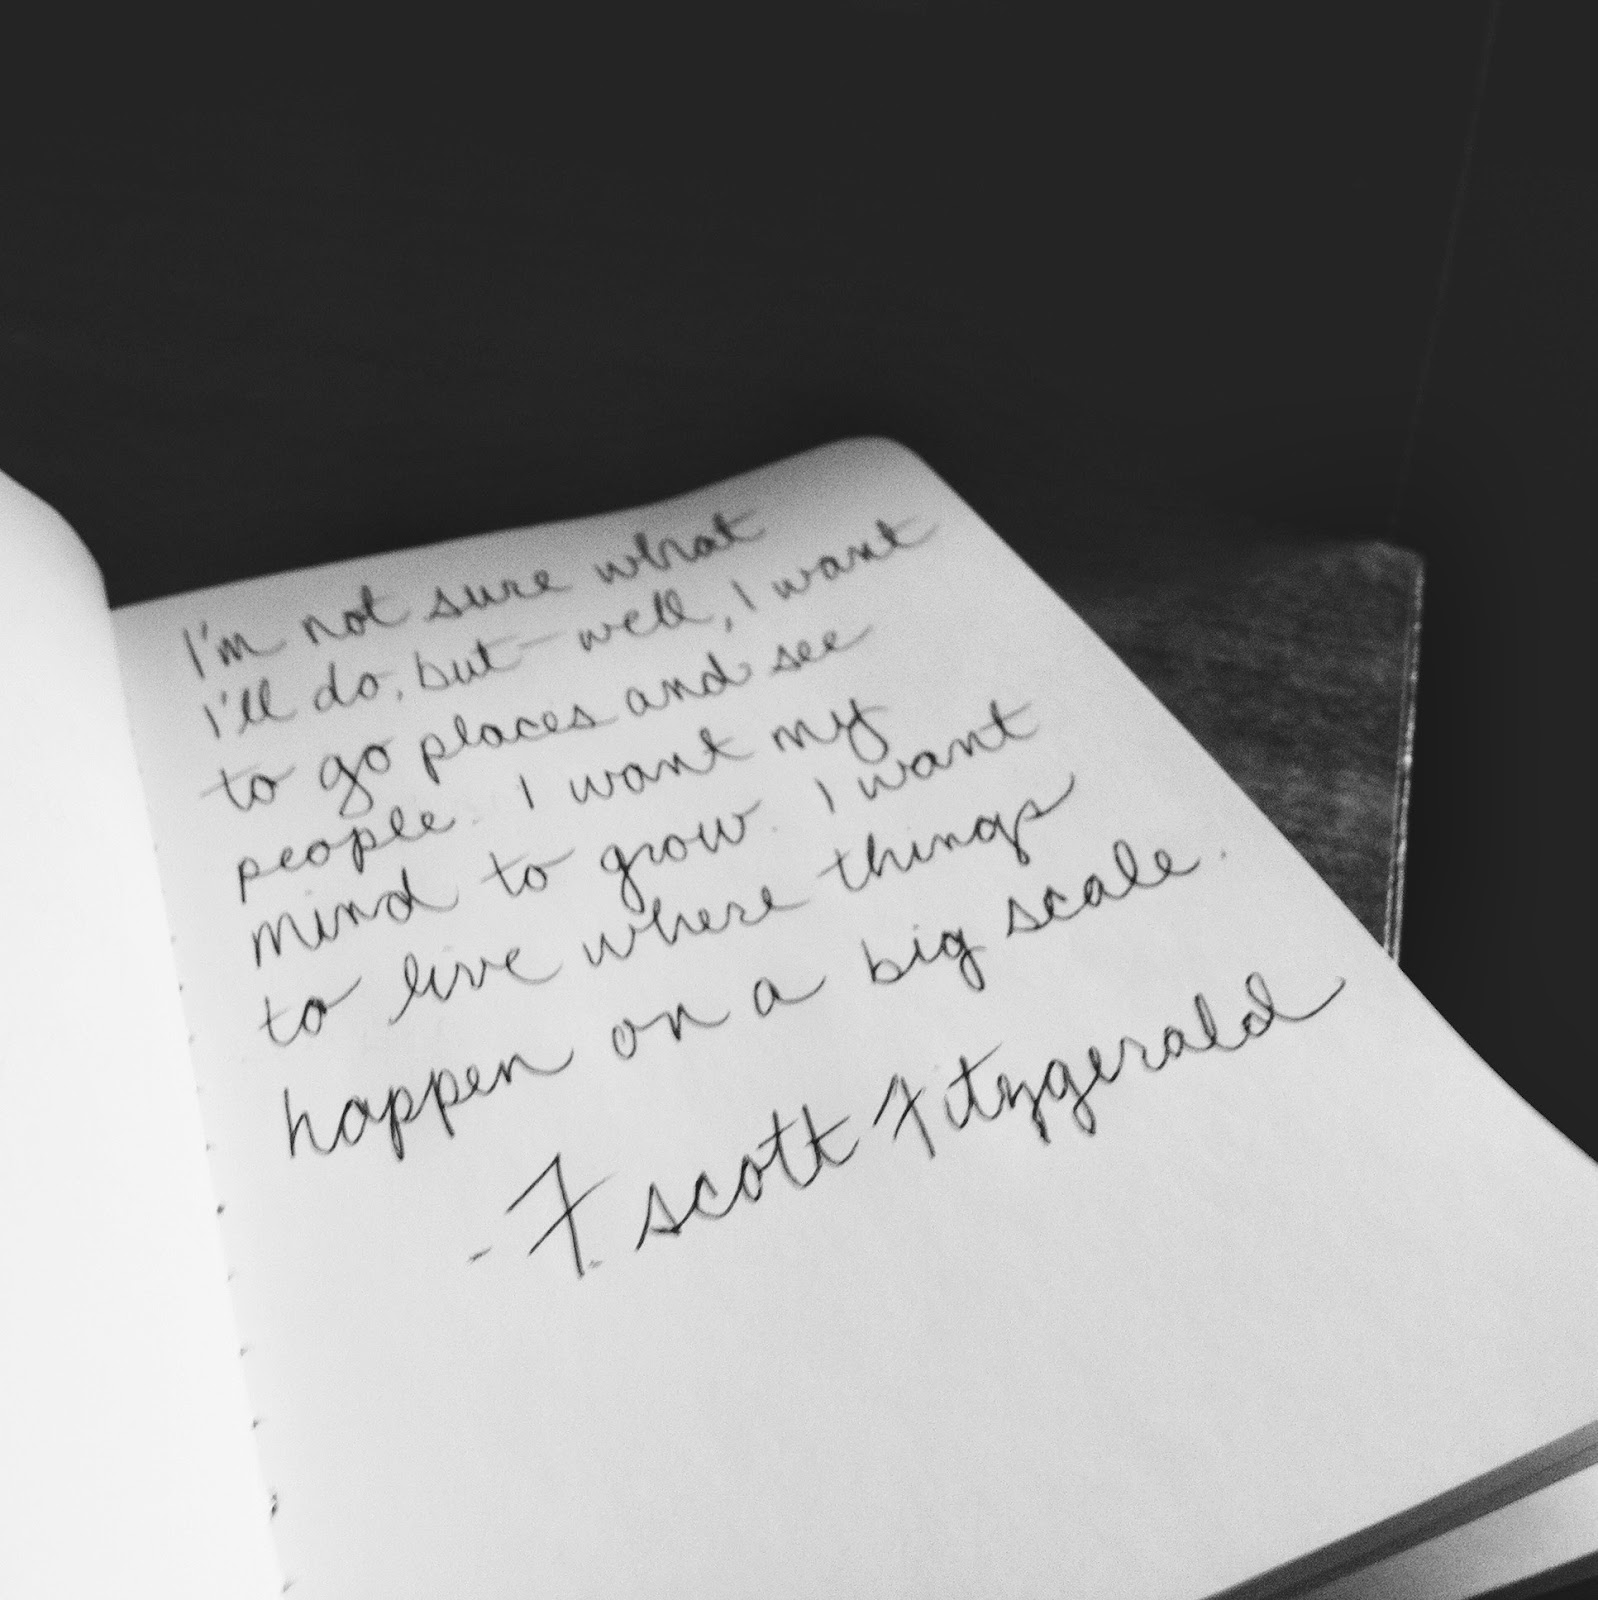 I'm not sure what
I'll do, but - well, I want
to go places and see
people. I want my
mind to grow. I want
to live where things
happen on a big scale.
- F. Scott Fitzgerald